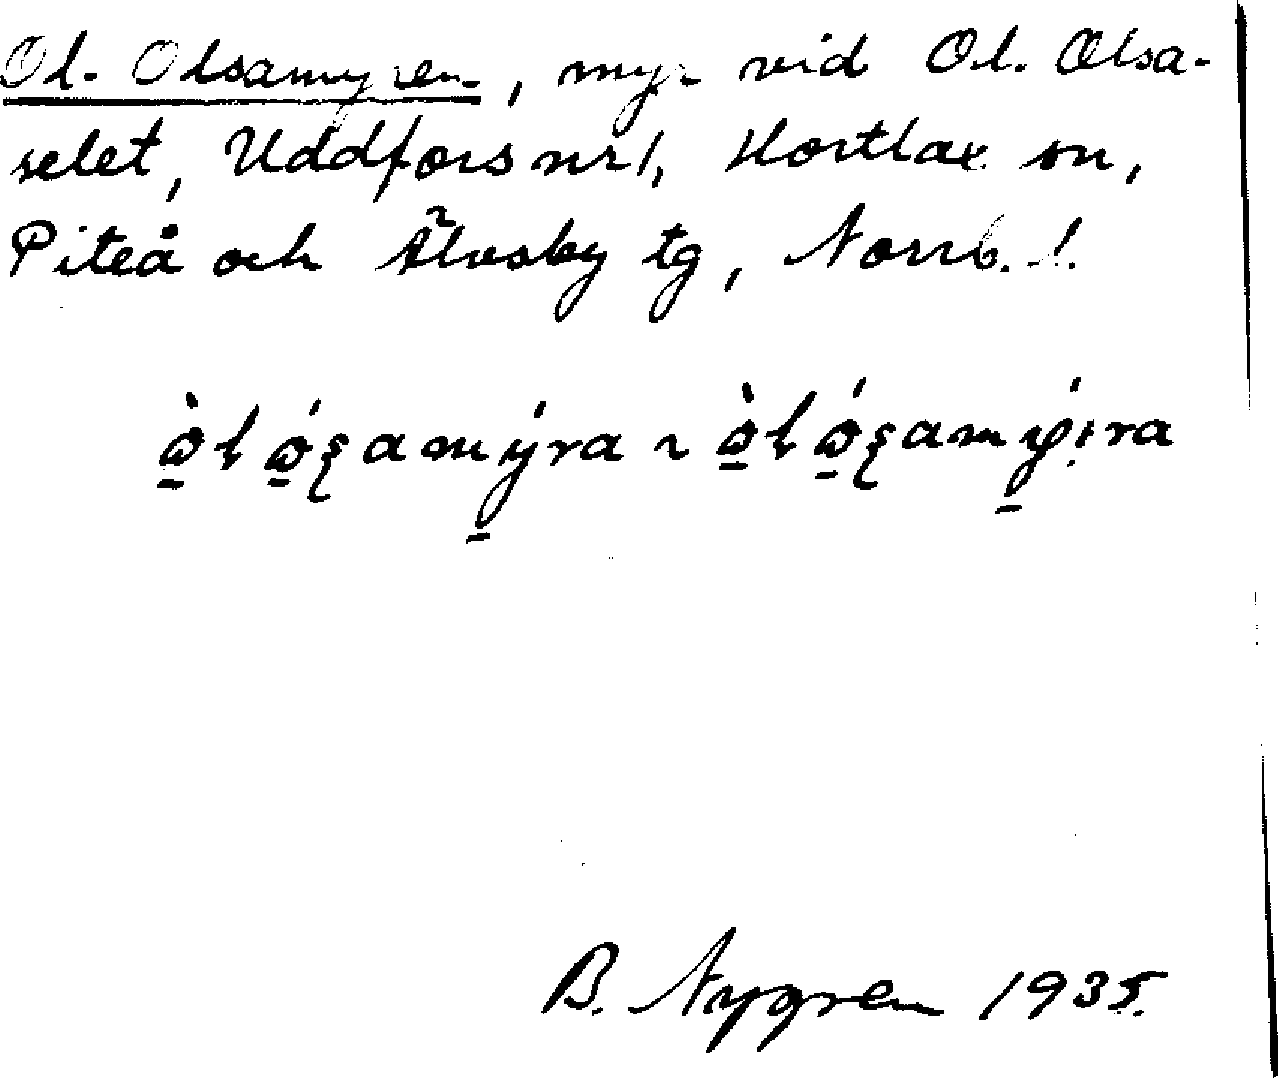 Ol. Olsamyren, myr vid Ol. Olsa-
selet, Uddfors nr 1, Hortlax sn,
Piteå och Älvsby tg, Norrb. l.
B. Nygren 1935.